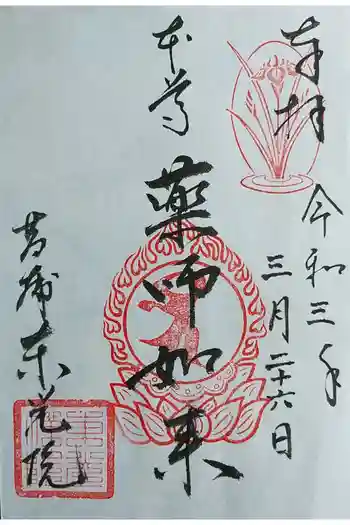 奉拝
令和三年
三月二十六日
本尊
薬師如来
菖蒲東光院